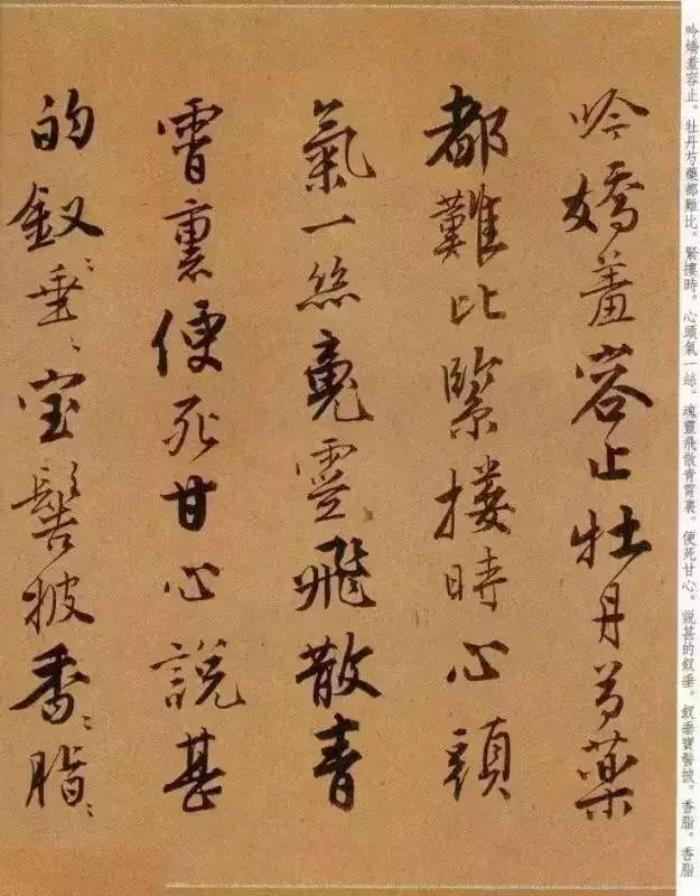 吟嬌羞容止。牡丹芍藥都難比。緊摟時。心頭氣一絲。魂靈飛散青霄裏。便死甘心。說甚的釵垂。釵垂寶髻披。香脂。香脂
吟嬌羞容止牡丹芍藥
都難比緊摟時心頭
氣一絲魂靈飛散青
霄裏便死甘心說甚
的釵〻垂〻宝髻披香〻脂〻